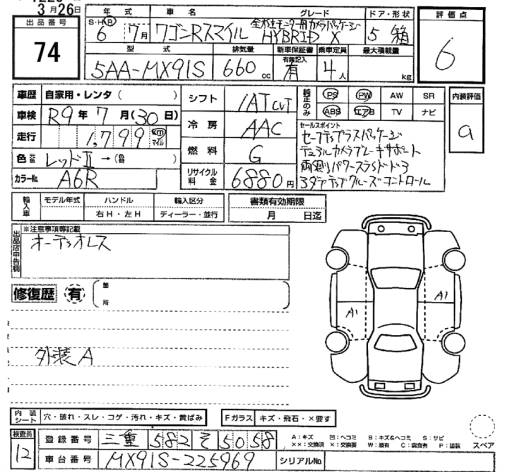 3月26日
出品番号
74
年式 車名 グレード ドア・形状
S・H・R 6年 7月 ワゴンRスマイル HYBRID X 5 箱
型式 排気量 新車保証書 乗車定員 最大積載量
5AA-MX91S 660cc 有 4人 kg
評価点
6
車歴 自家用・レンタ( )
車検 R9年 7月(30日)
走行 1,799 km マイル
色 レッドⅡ→(色 )
カラーNo. A6R
シフト IAT CVT
冷房 AAC
燃料 G
リサイクル料金 6880円
純正のみ PS PW AW SR
ABS エアB TV ナビ
セールスポイント
セーフティプラスパッケージ
デュアルカメラブレーキサポート
両側パワースライドドア
アダプティブクルーズコントロール
内装評価
a
輸入車 モデル年式 ハンドル 輸入区分
右H・左H ディーラー・並行
書類有効期限
月 日迄
出品店申告欄
※注意事項等記載
オーディオレス
修復歴 有
箇所
外装A
A1 A1
内装シート 穴・破れ・スレ・コゲ・汚れ・キズ・黄ばみ
Fガラス キズ・飛石・×要す
検査員
12
登録番号 三重 582 そ 5058
車台番号 MX91S-225969 シリアルNo.
A:キズ U:ヘコミ B:キズ&ヘコミ S:サビ
××:交換済 ×:要交換 W:補修 C:腐食 P:塗装
スペア